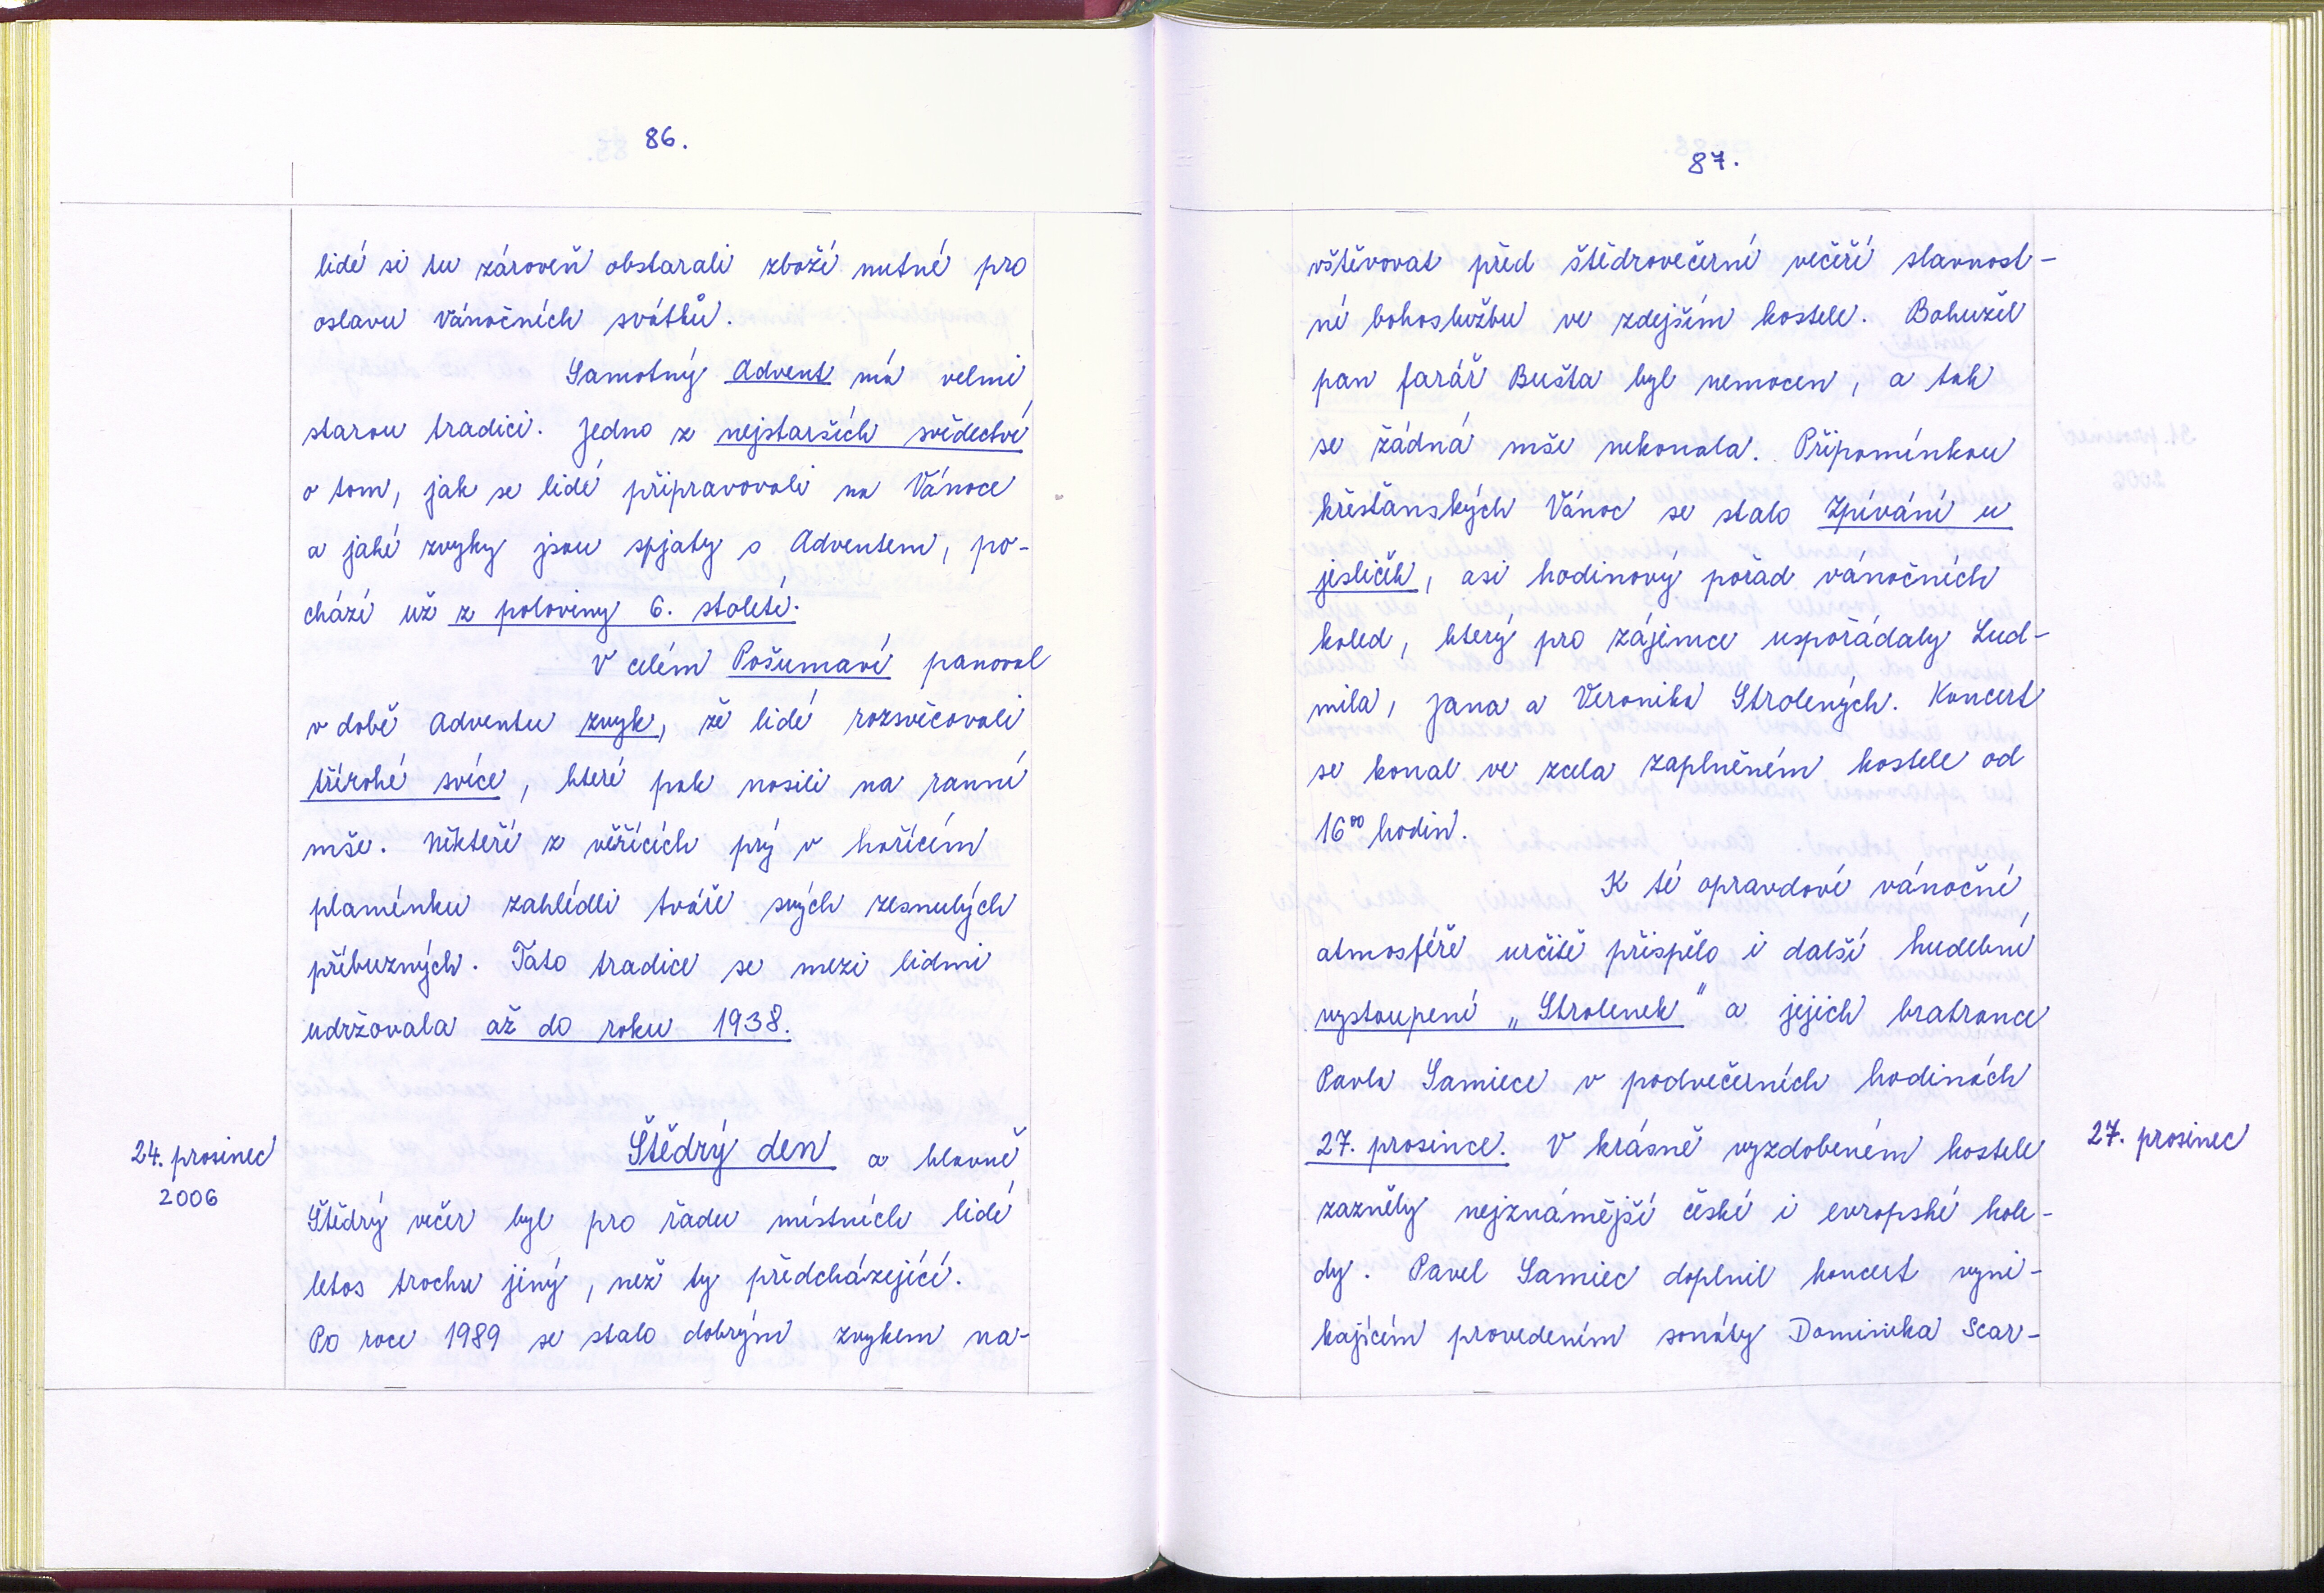 86.
lidé si tu zároveň obstarali zboží nutné pro
oslavu Vánočních svátků.
Samotný Advent má velmi
starou tradici. Jedno z nejstarších svědectví
o tom, jak se lidé připravovali na Vánoce
a jaké zvyky jsou spjaty s Adventem, po-
chází už z poloviny 6. století.
V celém Pošumaví panoval
v době Adventu zvyk, že lidé rozsvěcovali
třírohé svíce, které pak nosili na ranní
mše. Někteří z věřících prý v hořícím
plaménku zahlédli tváře svých zesnulých
příbuzných. Tato tradice se mezi lidmi
udržovala až do roku 1938.
24. prosinec
2006
Štědrý den a hlavně
Štědrý večer byl pro řadu místních lidí
letos trochu jiný, než ty předcházející.
Po roce 1989 se stalo dobrým zvykem na-
87.
vštěvovat před štědrovečerní večeří slavnost-
ní bohoslužbu ve zdejším kostele. Bohužel
pan farář Bušta byl nemocen, a tak
se žádná mše nekonala. Připomínkou
křesťanských Vánoc se stalo Zpívání u
jesliček, asi hodinový pořad vánočních
koled, který pro zájemce uspořádaly Lud-
mila, Jana a Veronika Strolených. Koncert
se konal ve zcela zaplněném kostele od
16⁰⁰ hodin.
K té opravdové vánoční
atmosféře určitě přispělo i další hudební
vystoupení „Strolenek" a jejich bratrance
Pavla Samiece v podvečerních hodinách
27. prosince. V krásně vyzdobeném kostele
27. prosinec
zazněly nejznámější české i evropské kole-
dy. Pavel Samiec doplnil koncert vyni-
kajícím provedením sonáty Dominika Scar-